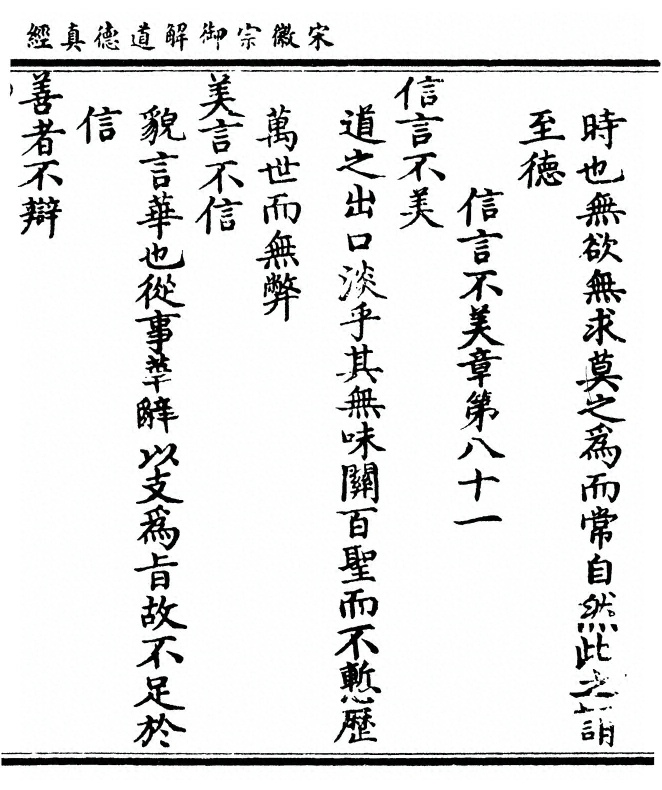 宋徽宗御解道德真經
時也無欲無求莫之爲而常自然此之謂
至德
信言不美章第八十一
信言不美
道之出口淡乎其無味關百聖而不慙歷
萬世而無弊
美言不信
貌言華也從事華辭以支爲旨故不足於
信
善者不辯